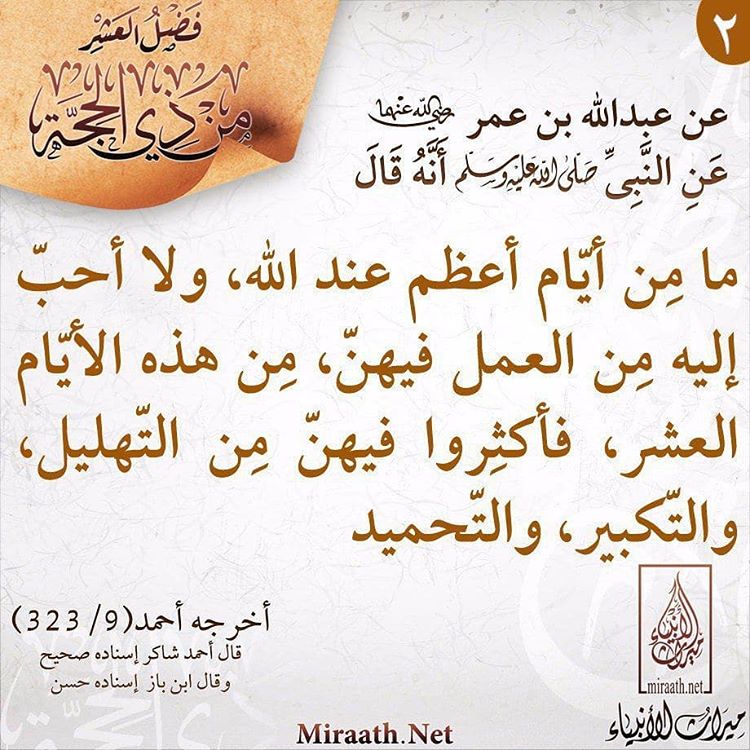 ٢
فَضْلُ العَشْرِ
مِنْ ذِي الحِجَّةِ
عن عبدالله بن عمر رضي الله عنهما
عَنِ النَّبِيِّ صَلَّى اللَّهُ عَلَيْهِ وَسَلَّمَ أَنَّهُ قَالَ
ما مِن أيّام أعظم عند الله، ولا أحبّ
إليه مِن العمل فيهنّ، مِن هذه الأيّام
العشر، فأكثِروا فيهنّ مِن التّهليل،
والتّكبير، والتّحميد
أخرجه أحمد(9/ 323)
قال أحمد شاكر إسناده صحيح
وقال ابن باز إسناده حسن
ميراث الأنبياء
miraath.net
ميراث الأنبياء
Miraath.Net